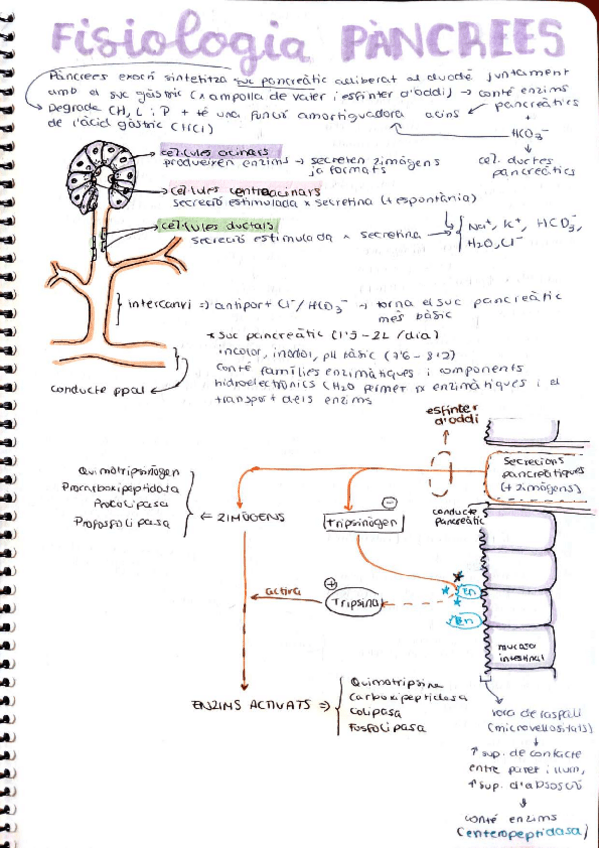 Fisiologia PÀNCREES
Pàncrees exocrí sintetitza suc pancreàtic alliberat al duodè juntament
amb el suc gàstric (x ampolla de vater i esfínter d'oddi) → conté enzims
pancreàtics
Degrada CH, L i P + té una funció amortiguadora
acins
de l'àcid gàstric (HCl)
HCO₃⁻
cel. ductes
pancreàtics
cel·lules acinars
produeixen enzims → secreten zimògens
ja formats
cel·lules centroacinars
secreció estimulada x secretina (+ espontània)
cel·lules ductals
secreció estimulada x secretina
Na⁺, K⁺, HCO₃⁻,
H₂O, Cl⁻
intercanvi => antiport Cl⁻/HCO₃⁻ → torna el suc pancreàtic
més bàsic
* Suc pancreàtic (1'5 - 2L /dia)
incolor, inodor, pH bàsic (7'6 - 8'2)
Conté famílies enzimàtiques i components
hidroelectrònics (H₂O permet rx enzimàtiques i el
transport dels enzims
conducte ppal
esfínter
d'oddi
secrecions
pancreàtiques
(+ zimògens)
Quimotripsinògen
Procarboxipeptidasa
Procolipasa
Profosfolipasa
← ZIMÒGENS
tripsinògen
conducte
pancreàtic
activa
Tripsina
En
En
mucosa
intestinal
ENZIMS ACTIVATS ⇒
Quimotripsina
Carboxipeptidasa
Colipasa
Fosfolipasa
vora de raspall
(microvellositats)
↑ sup. de contacte
entre paret i llum,
↑ sup. d'absorció
conté enzims
(enteropeptidasa)